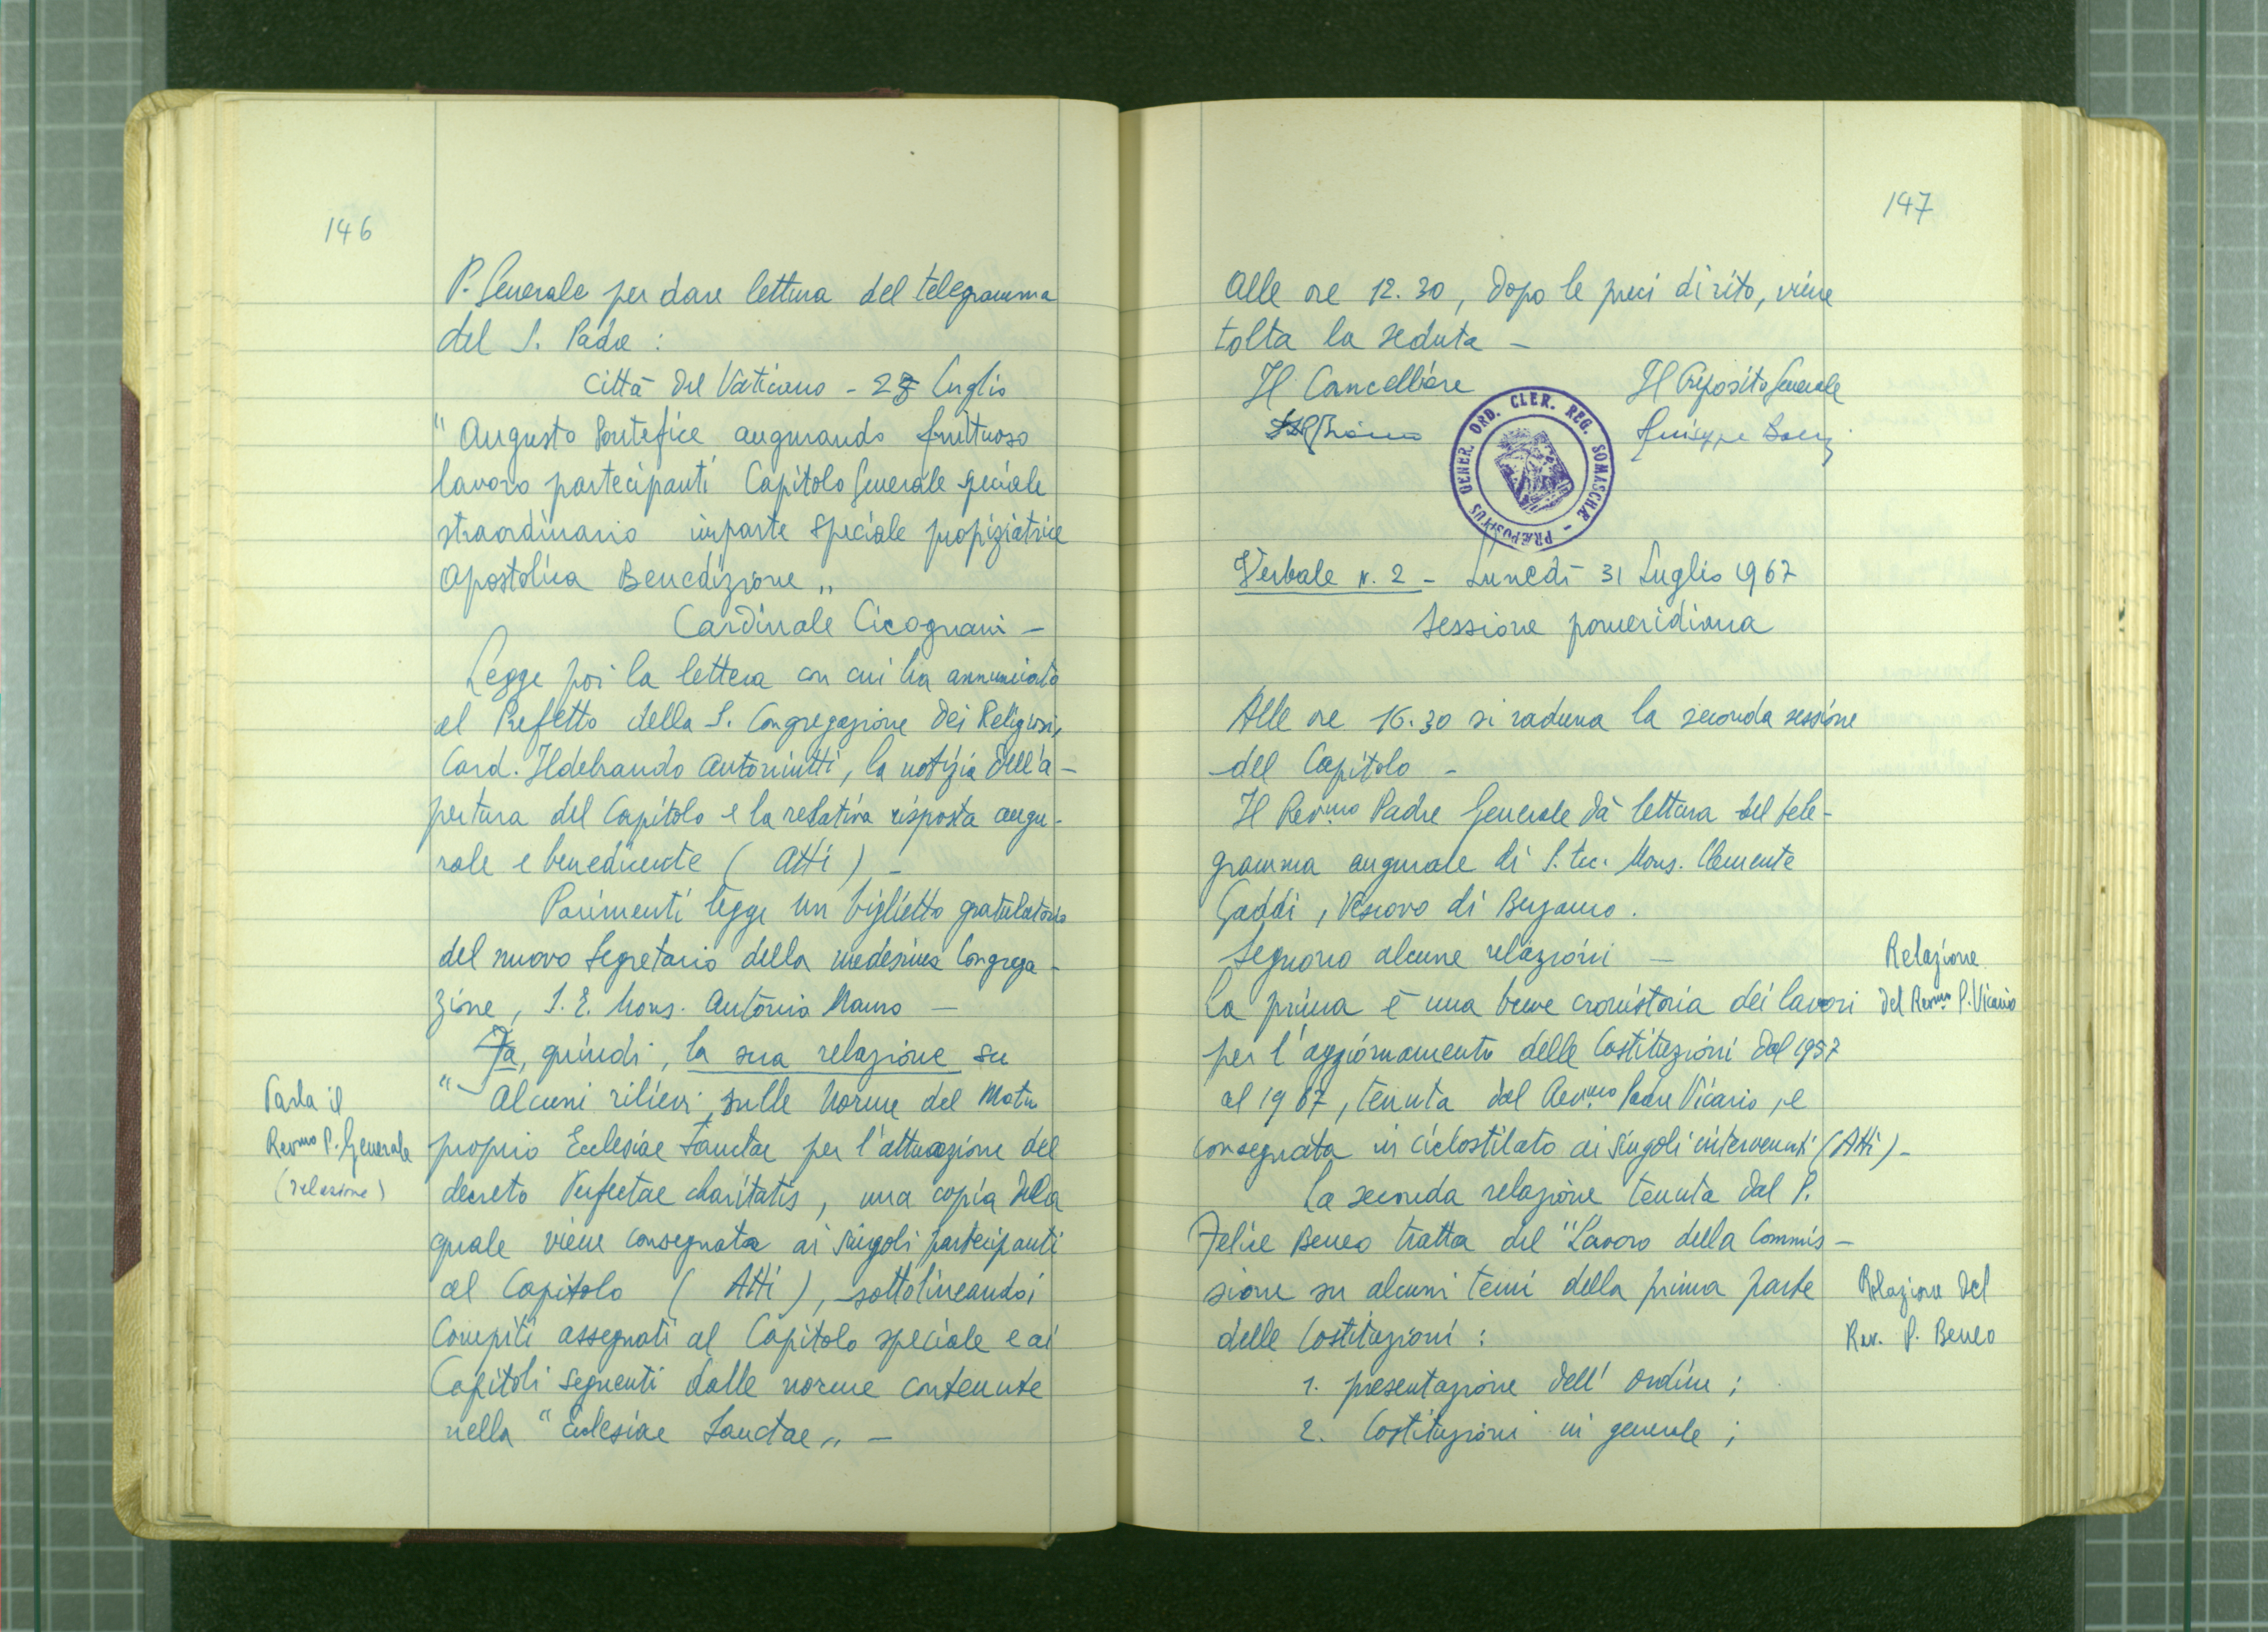 146
P. Generale per dare lettura del telegramma
del S. Padre :
Città del Vaticano - 27 Luglio
" Augusto Pontefice augurando fruttuoso
lavoro partecipanti Capitolo Generale speciale
straordinario imparte speciale propiziatrice
Apostolica Benedizione „
Cardinale Cicognani -
Legge poi la lettera con cui ha annunciato
al Prefetto della S. Congregazione dei Religiosi,
Card. Ildebrando Antoniutti, la notizia dell'a-
pertura del Capitolo e la relativa risposta augu-
rale e benedicente ( Atti ) -
Parimenti legge un biglietto gratulatorio
del nuovo Segretario della medesima Congrega-
zione, S. E. Mons. Antonio Mauro -
Fa, quindi, la sua relazione su
" Alcuni rilievi sulle Norme del Motu
proprio Ecclesiae Sanctae per l'attuazione del
decreto Perfectae charitatis, una copia della
quale viene consegnata ai singoli partecipanti
al Capitolo ( Atti ), sottolineando i
Compiti assegnati al Capitolo speciale e ai
Capitoli seguenti dalle norme contenute
nella " Ecclesiae Sanctae „ -
Parla il
Revmo P. Generale
(relazione)
147
Alle ore 12.30, dopo le preci di rito, viene
tolta la seduta -
Il Cancelliere
Il Preposito Generale
Giuseppe
PRÆPOSITUS GENER. ORD. CLER. REG. SOMASCHÆ -
Verbale N. 2 - Lunedì 31 Luglio 1967
Sessione pomeridiana
Alle ore 16.30 si raduna la seconda sessione
del Capitolo -
Il Rev.mo Padre Generale dà lettura del tele-
gramma augurale di S. Ecc. Mons. Clemente
Gaddi, Vescovo di Bergamo.
Seguono alcune relazioni -
La prima è una breve cronistoria dei lavori
per l'aggiornamento delle Costituzioni dal 1957
al 1967, tenuta dal Rev.mo Padre Vicario, e
consegnata in ciclostilato ai singoli intervenuti (Atti) -
La seconda relazione tenuta dal P.
Felice Beneo tratta del "Lavoro della Commis-
sione su alcuni temi della prima parte
delle Costituzioni :
1. presentazione dell' Ordine ;
2. Costituzioni in generale ;
Relazione
del Revmo P. Vicario
Relazione del
Rev. P. Beneo